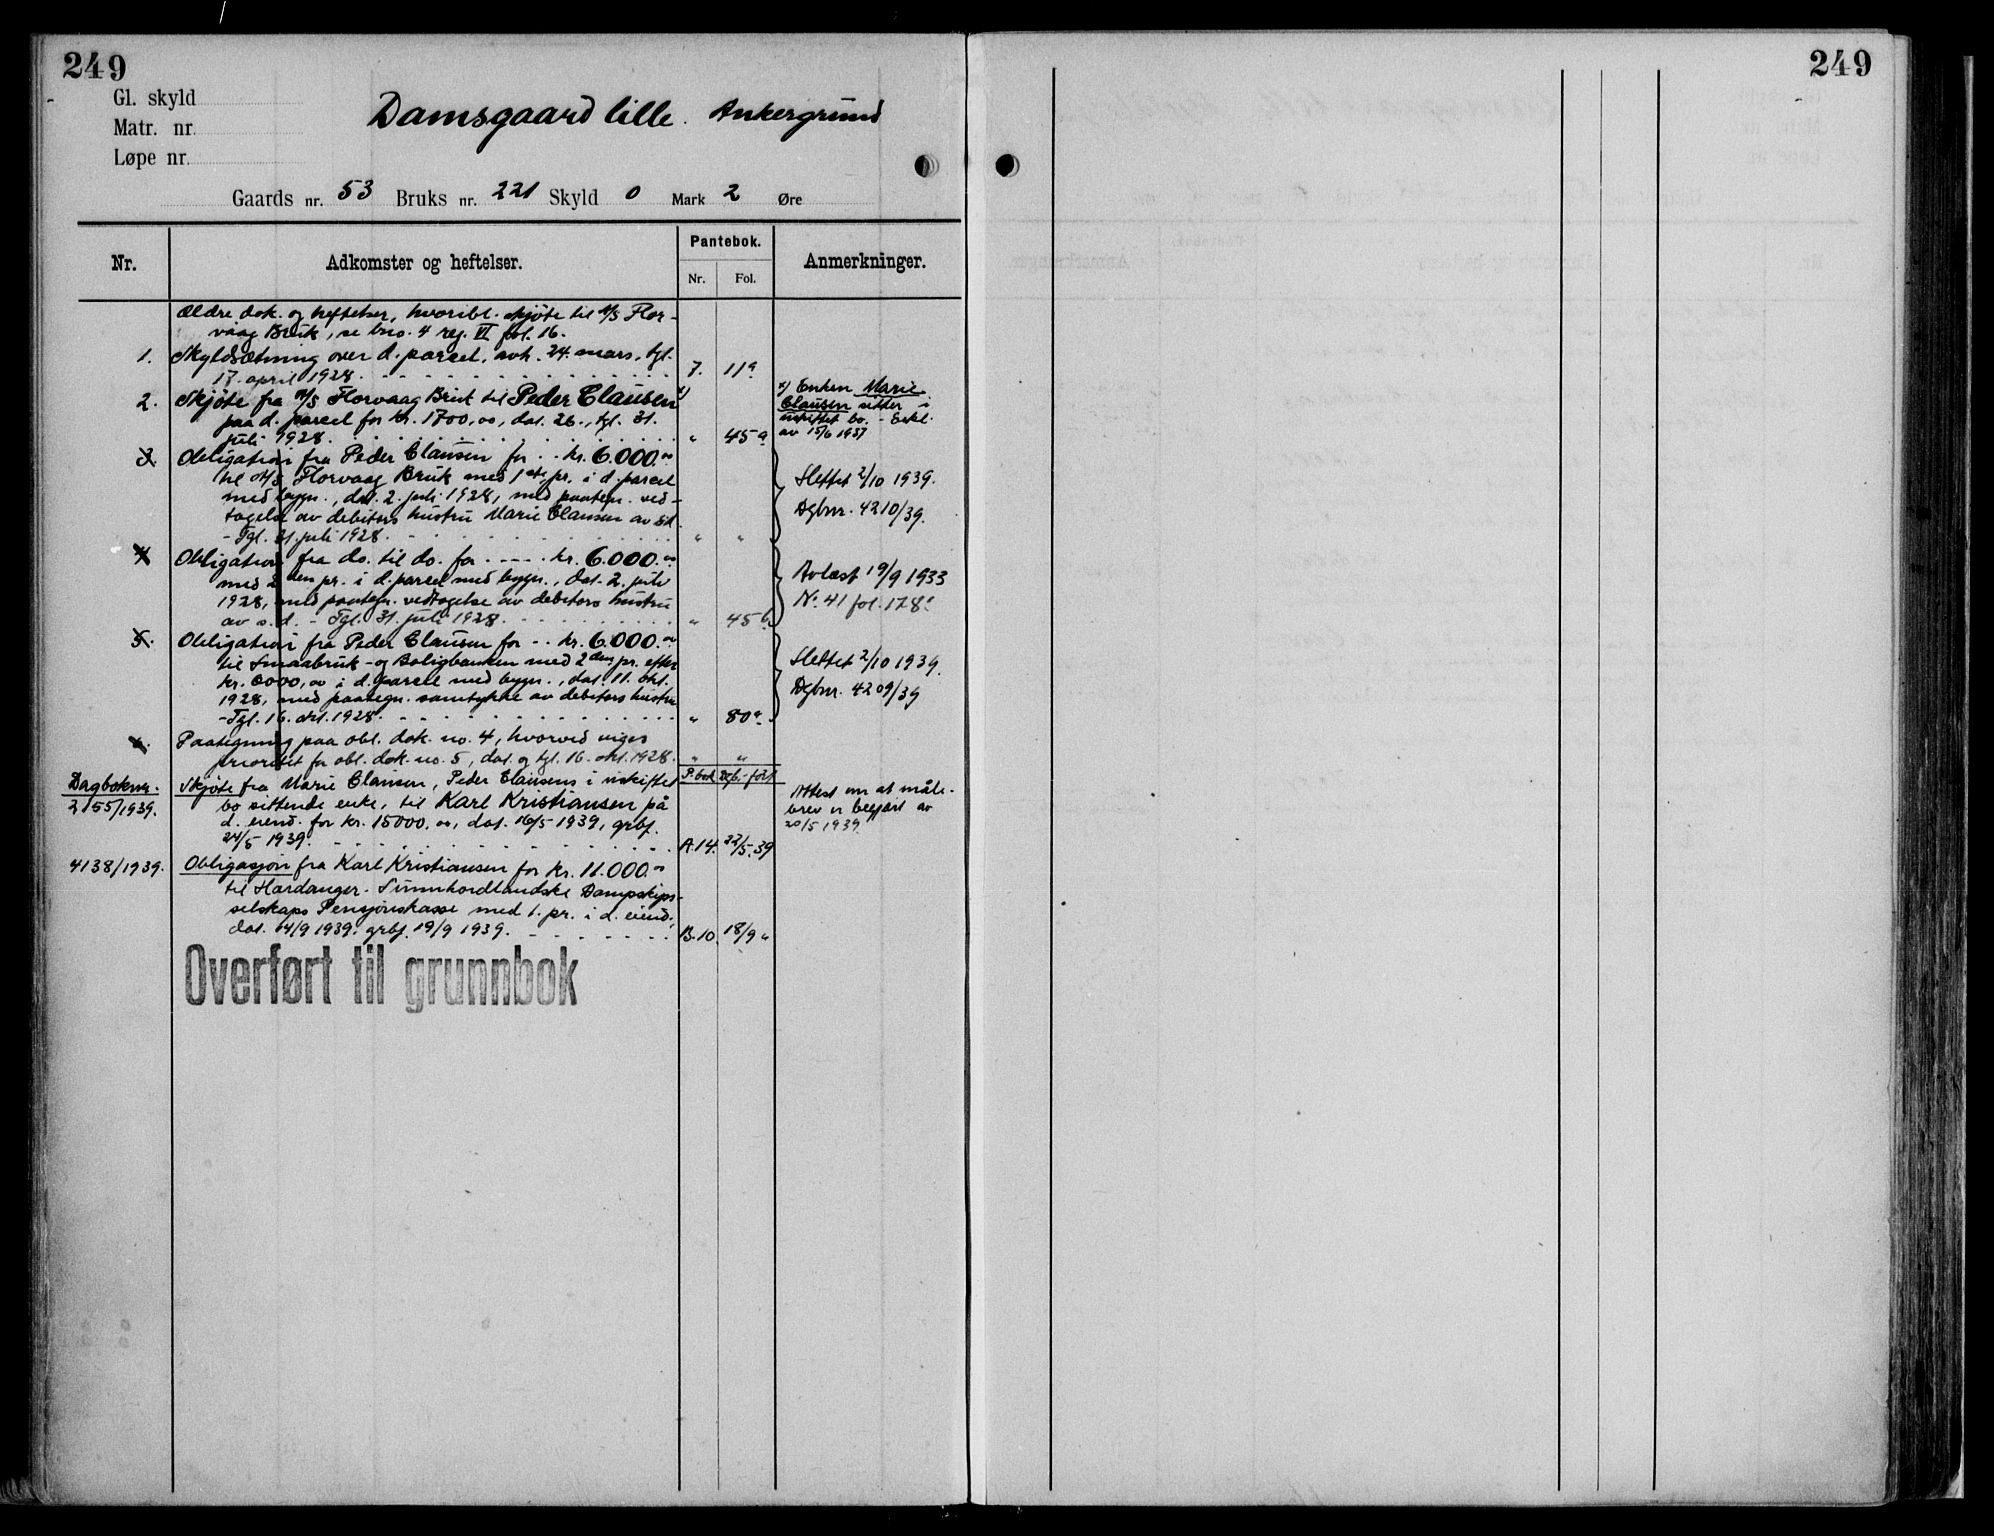 249
249
Gl. skyld
Matr. nr.
Løpe nr.
Damsgaard lille. Ankergrund
Gaards nr. 53 Bruks nr. 221 Skyld 0 Mark 2 Øre
Nr.
Adkomster og heftelser.
Pantebok.
Nr. Fol.
Anmerkninger.
Ældre dok. og heftelser, hvoribl. skjøte til A/S Flor-
vaag Bruk, se bno. 4 reg. VI fol. 16.
1. Skyldsætning over d. parcel, avh. 24. mars, tgl.
17. april 1928. 7. 11a
2. Skjøte fra A/S Florvaag Bruk til Peder Clausen x)
paa d. parcel for kr. 1700,00, dat. 26., tgl. 31.
juli 1928. " 45a
x) Enken Marie
Clausen sitter i
uskiftet bo. - Erkl.
av 15/6 1937
3. Obligation fra Peder Clausen for .. kr. 6.000.00
til A/S Florvaag Bruk med 1ste pr. i d. parcel
med bygn., dat. 2. juli 1928, med paategn. ved-
tagelse av debitors hustru Marie Clausen av s.d.
- Tgl. 31. juli 1928. " "
Slettet 2/10 1939.
Dgbnr. 4210/39.
4. Obligation fra do. til do. for .... kr. 6.000.00
med 2den pr. i d. parcel med bygn., dat. 2. juli
1928, med paategn. vedtagelse av debitors hustru
av s. d. - Tgl. 31. juli 1928. " 45b
Avlæst 19/9 1933
No. 41 fol. 178a
5. Obligation fra Peder Clausen for .. kr. 6.000.00
til Smaabruk- og Boligbanken med 2den pr. efter
kr. 6000,00 i d. parcel med bygn., dat. 11. okt.
1928, med paategn. samtykke av debitors hustru
- Tgl. 16. okt. 1928. " 80a
Slettet 2/10 1939.
Dgbnr. 4209/39
6. Paategning paa obl. dok. no. 4, hvorved viges
prioritet for obl. dok. no. 5, dat. og tgl. 16. okt. 1928. " "
Dagboknr. P.bok Dgb.-ført
2155/1939. Skjøte fra Marie Clausen, Peder Clausens i uskiftet
bo sittende enke, til Karl Kristiansen på
d. eiend. for kr. 15000.00, dat. 16/5 1939, grbf.
24/5 1939. A.14. 22/5.39
Attest om at måle-
brev er begjært av
20/5 1939.
4138/1939. Obligasjon fra Karl Kristiansen for kr. 11.000.00
til Hardanger-Sunnhordlandske Dampskips-
selskaps Pensjonskasse med 1. pr. i d. eiend.,
dat. 14/9 1939. grbf. 19/9 1939. B.10. 18/9 "
Overført til grunnbok